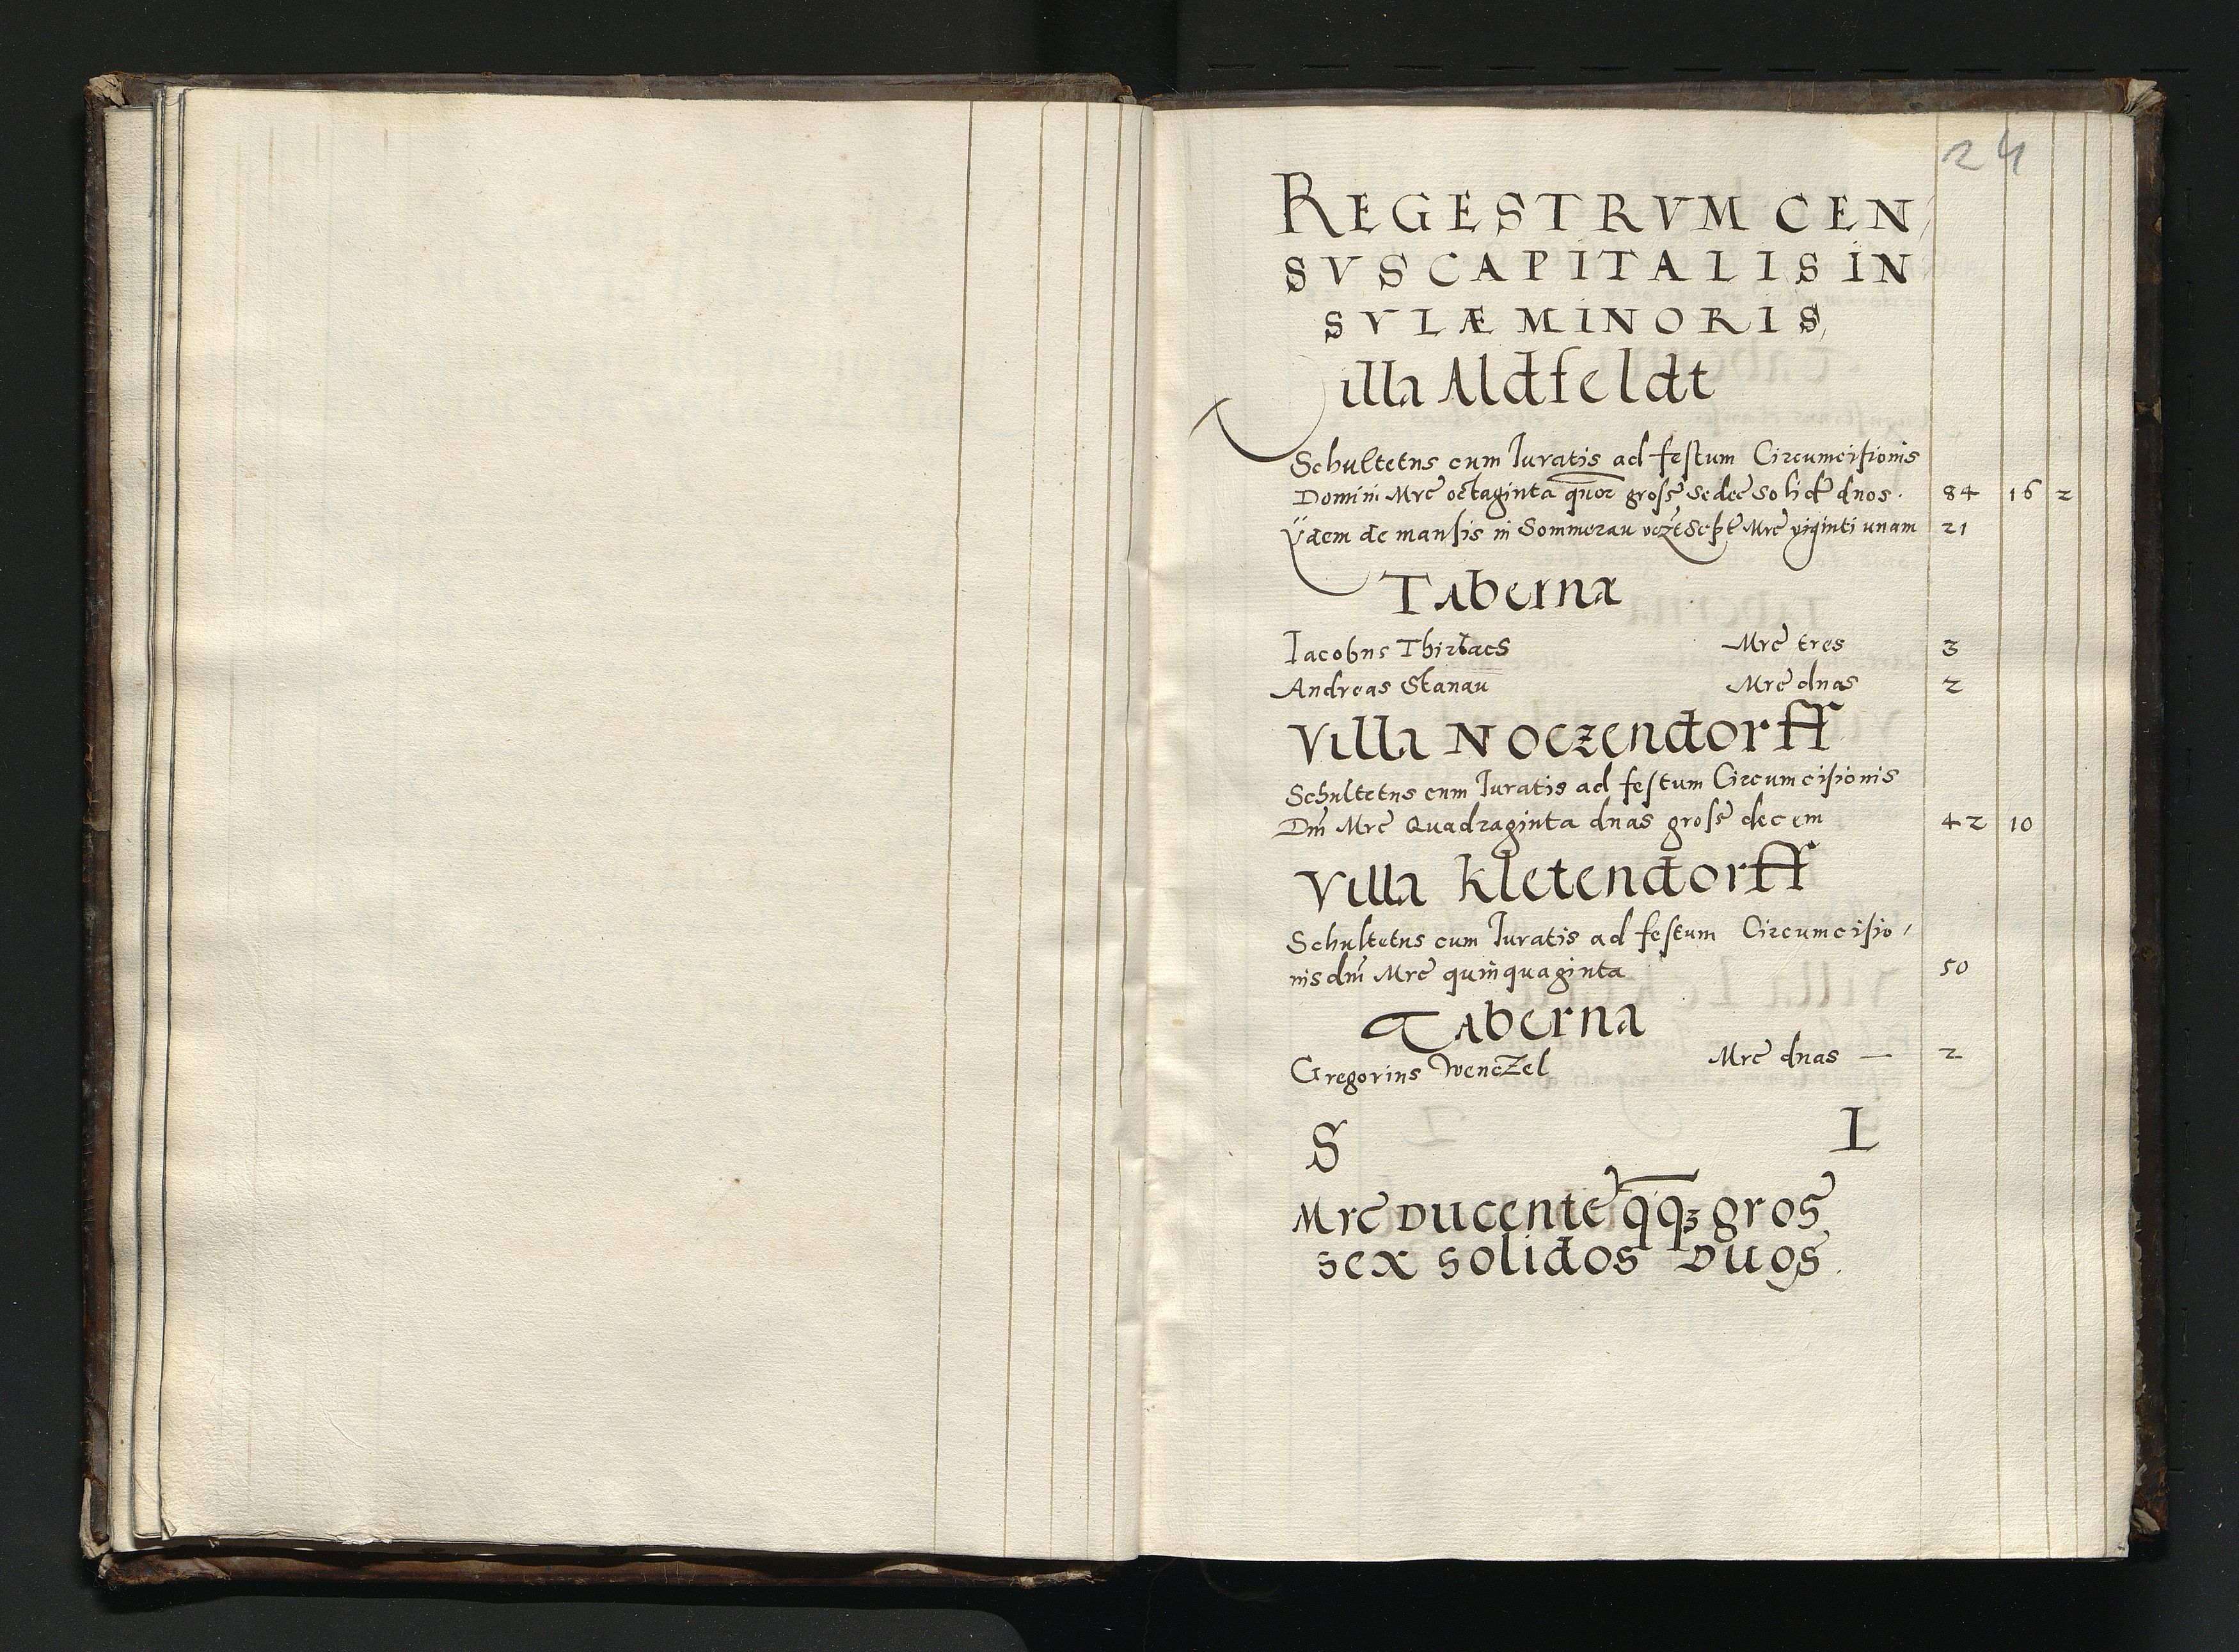 24
REGESTRVM CEN,
SVS CAPITALIS IN
SVLÆ MINORIS,
Villa Aldfeldt
Schultetus cum Iuratis ad festum Circumcisionis
Domini Mrc octaginta quor gross sedec solid duos. 84 16 2
Ÿdem de mansis in Sommerau Mrc viginti unam 21
Taberna
Iacobus Mrc tres 3
Andreas Stanau Mrc duas 2
Villa Noczendorff
Schultetus cum Iuratis ad festum Circumcisionis
Dni Mrc Quadraginta duas gross decem 42 10
Villa Kletendorff
Schultetus cum Iuratis ad festum Circumcisio,
nis dni Mrc quinquaginta 50
Taberna
Gregorius Wenczel Mrc duas — 2
S L
Mrc ducente qqȝ gros
sex solidos duos.